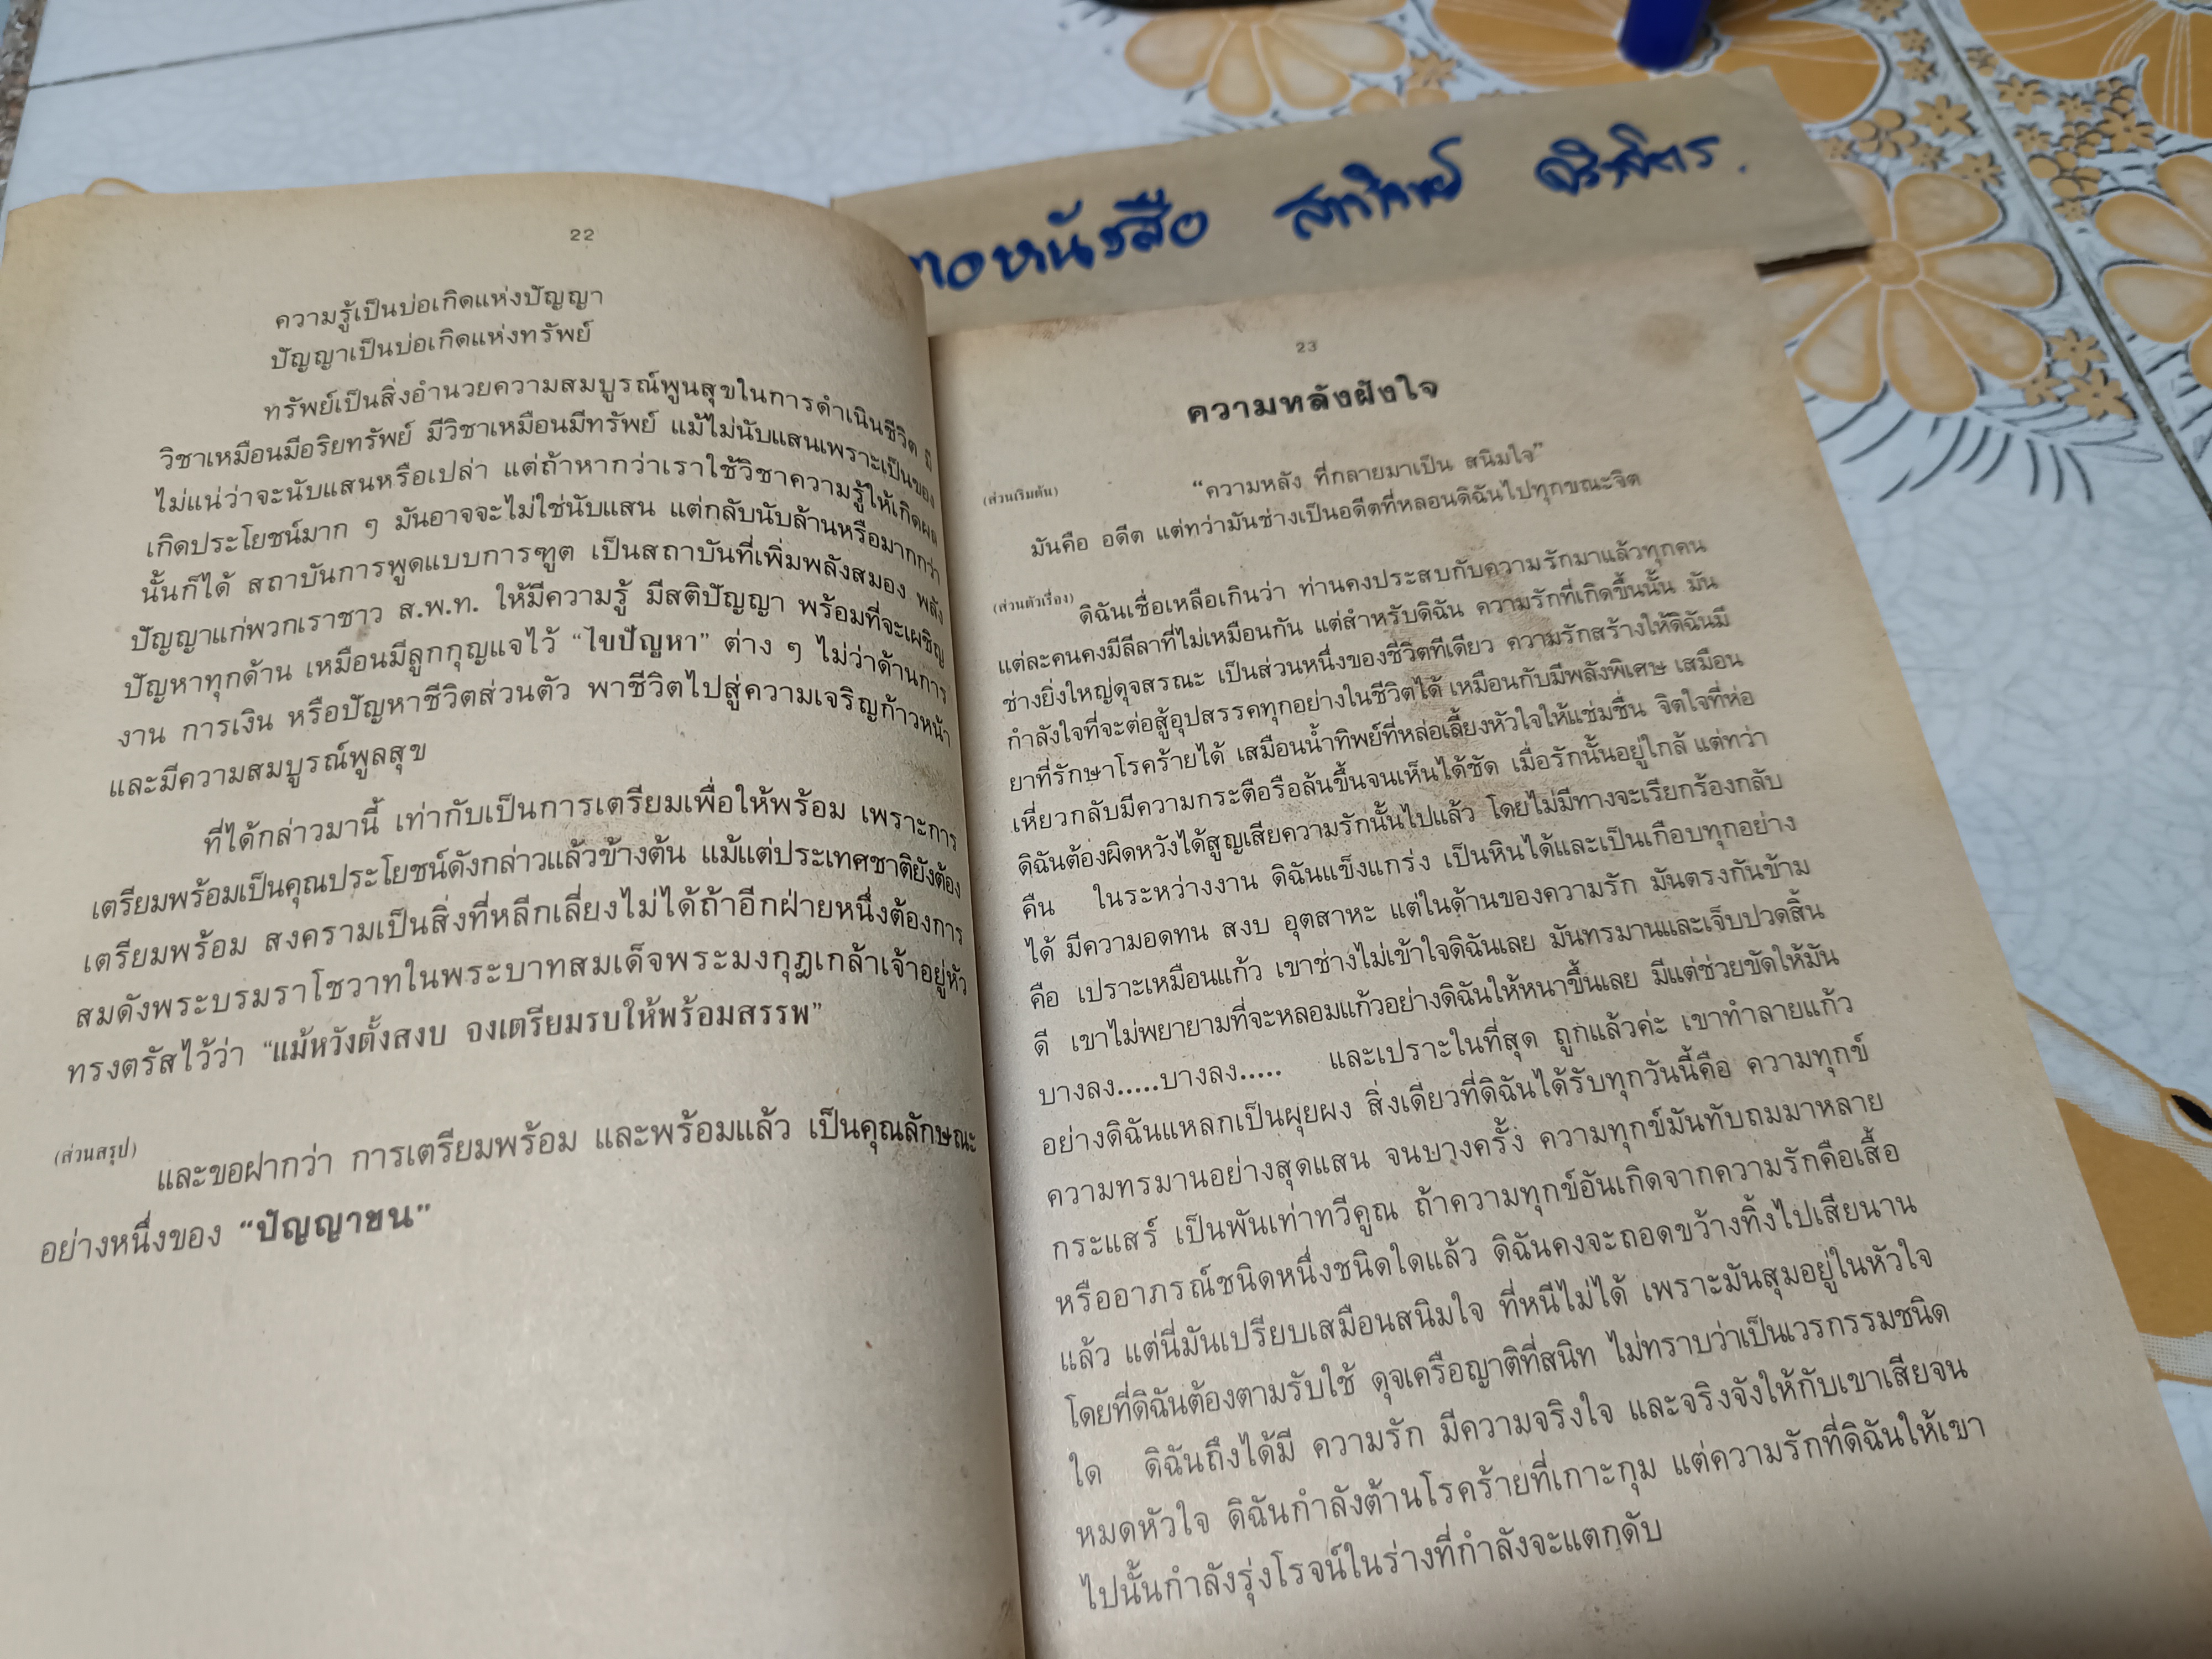 22
ความรู้เป็นบ่อเกิดแห่งปัญญา
ปัญญาเป็นบ่อเกิดแห่งทรัพย์
ทรัพย์เป็นสิ่งอำนวยความสมบูรณ์พูนสุขในการดำเนินชีวิต มี
วิชาเหมือนมีอริยทรัพย์ มีวิชาเหมือนมีทรัพย์ แม้ไม่นับแสนเพราะเป็นของ
ไม่แน่ว่าจะนับแสนหรือเปล่า แต่ถ้าหากว่าเราใช้วิชาความรู้ให้เกิดผล
เกิดประโยชน์มาก ๆ มันอาจจะไม่ใช่นับแสน แต่กลับนับล้านหรือมากกว่า
นั้นก็ได้ สถาบันการพูดแบบการฑูต เป็นสถาบันที่เพิ่มพลังสมอง พลัง
ปัญญาแก่พวกเราชาว ส.พ.ท. ให้มีความรู้ มีสติปัญญา พร้อมที่จะเผชิญ
ปัญหาทุกด้าน เหมือนมีลูกกุญแจไว้ “ไขปัญหา” ต่าง ๆ ไม่ว่าด้านการ
งาน การเงิน หรือปัญหาชีวิตส่วนตัว พาชีวิตไปสู่ความเจริญก้าวหน้า
และมีความสมบูรณ์พูลสุข
ที่ได้กล่าวมานี้ เท่ากับเป็นการเตรียมเพื่อให้พร้อม เพราะการ
เตรียมพร้อมเป็นคุณประโยชน์ดังกล่าวแล้วข้างต้น แม้แต่ประเทศชาติยังต้อง
เตรียมพร้อม สงครามเป็นสิ่งที่หลีกเลี่ยงไม่ได้ถ้าอีกฝ่ายหนึ่งต้องการ
สมดังพระบรมราโชวาทในพระบาทสมเด็จพระมงกุฎเกล้าเจ้าอยู่หัว
ทรงตรัสไว้ว่า “แม้หวังตั้งสงบ จงเตรียมรบให้พร้อมสรรพ”
(ส่วนสรุป)
และขอฝากว่า การเตรียมพร้อม และพร้อมแล้ว เป็นคุณลักษณะ
อย่างหนึ่งของ “ปัญญาชน”
หนังสือ
23
ความหลังฝังใจ
(ส่วนเริ่มต้น)
“ความหลัง ที่กลายมาเป็น สนิมใจ”
มันคือ อดีต แต่ทว่ามันช่างเป็นอดีตที่หลอนดิฉันไปทุกขณะจิต
(ส่วนตัวเรื่อง)
ดิฉันเชื่อเหลือเกินว่า ท่านคงประสบกับความรักมาแล้วทุกคน
แต่ละคนคงมีลีลาที่ไม่เหมือนกัน แต่สำหรับดิฉัน ความรักที่เกิดขึ้นนั้น มัน
ช่างยิ่งใหญ่ดุจสรณะ เป็นส่วนหนึ่งของชีวิตทีเดียว ความรักสร้างให้ดิฉันมี
กำลังใจที่จะต่อสู้อุปสรรคทุกอย่างในชีวิตได้ เหมือนกับมีพลังพิเศษ เสมือน
ยาที่รักษาโรคร้ายได้ เสมือนน้ำทิพย์ที่หล่อเลี้ยงหัวใจให้แช่มชื่น จิตใจที่ห่อ
เหี่ยวกลับมีความกระตือรือล้นขึ้นจนเห็นได้ชัด เมื่อรักนั้นอยู่ใกล้ แต่ทว่า
ดิฉันต้องผิดหวังได้สูญเสียความรักนั้นไปแล้ว โดยไม่มีทางจะเรียกร้องกลับ
คืน ในระหว่างงาน ดิฉันแข็งแกร่ง เป็นหินได้และเป็นเกือบทุกอย่าง
ได้ มีความอดทน สงบ อุตสาหะ แต่ในด้านของความรัก มันตรงกันข้าม
คือ เปราะเหมือนแก้ว เขาช่างไม่เข้าใจดิฉันเลย มันทรมานและเจ็บปวดสิ้น
ดี เขาไม่พยายามที่จะหลอมแก้วอย่างดิฉันให้หนาขึ้นเลย มีแต่ช่วยขัดให้มัน
บางลง.....บางลง..... และเปราะในที่สุด ถูกแล้วค่ะ เขาทำลายแก้ว
อย่างดิฉันแหลกเป็นผุยผง สิ่งเดียวที่ดิฉันได้รับทุกวันนี้คือ ความทุกข์
ความทรมานอย่างสุดแสน จนบางครั้ง ความทุกข์มันทับถมมาหลาย
กระแสร์ เป็นพันเท่าทวีคูณ ถ้าความทุกข์อันเกิดจากความรักคือเสื้อ
หรืออาภรณ์ชนิดหนึ่งชนิดใดแล้ว ดิฉันคงจะถอดขว้างทิ้งไปเสียนาน
แล้ว แต่นี่มันเปรียบเสมือนสนิมใจ ที่หนีไม่ได้ เพราะมันสุมอยู่ในหัวใจ
โดยที่ดิฉันต้องตามรับใช้ ดุจเครือญาติที่สนิท ไม่ทราบว่าเป็นเวรกรรมชนิด
ใด ดิฉันถึงได้มี ความรัก มีความจริงใจ และจริงจังให้กับเขาเสียจน
หมดหัวใจ ดิฉันกำลังต้านโรคร้ายที่เกาะกุม แต่ความรักที่ดิฉันให้เขา
ไปนั้นกำลังรุ่งโรจน์ในร่างที่กำลังจะแตกดับ